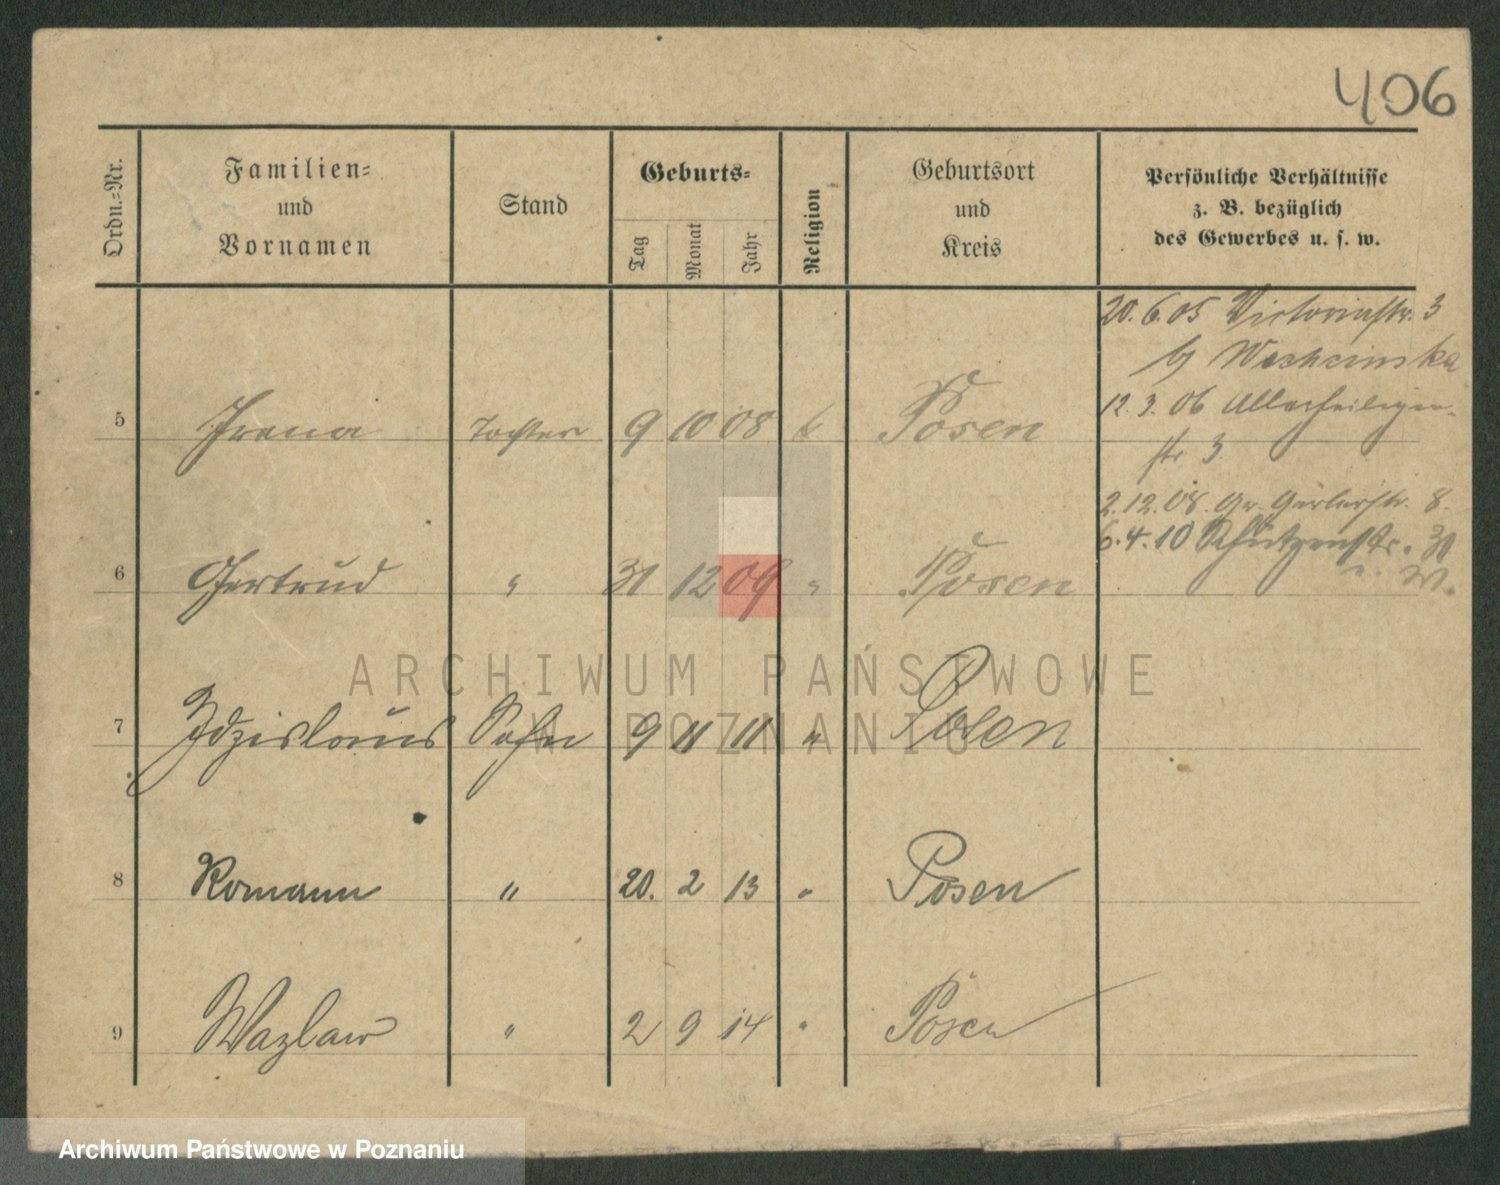 406
Ordn.-Nr.
Familien-
und
Vornamen
Stand
Geburts-
Tag
Monat
Jahr
Religion
Geburtsort
und
Kreis
Persönliche Verhältnisse
z. B. bezüglich
des Gewerbes u. s. w.
20.6.05 Victoriastr. 3
12.3.06 Allerheiligen-
str 3
2.12.08. Gr. Gerberstr. 8.
6.4.10 Schützenstr. 31
5 Irena Tochter 9 10 08 k Posen
6 Gertrud " 31 12 09 " Posen
7 Zdzislaus Sohn 9 11 11 " Posen
8 Romann " 20. 2 13 " Posen
9 Wazlaw " 2 9 14 " Posen
ARCHIWUM PAŃSTWOWE
W POZNANIU
Archiwum Państwowe w Poznaniu